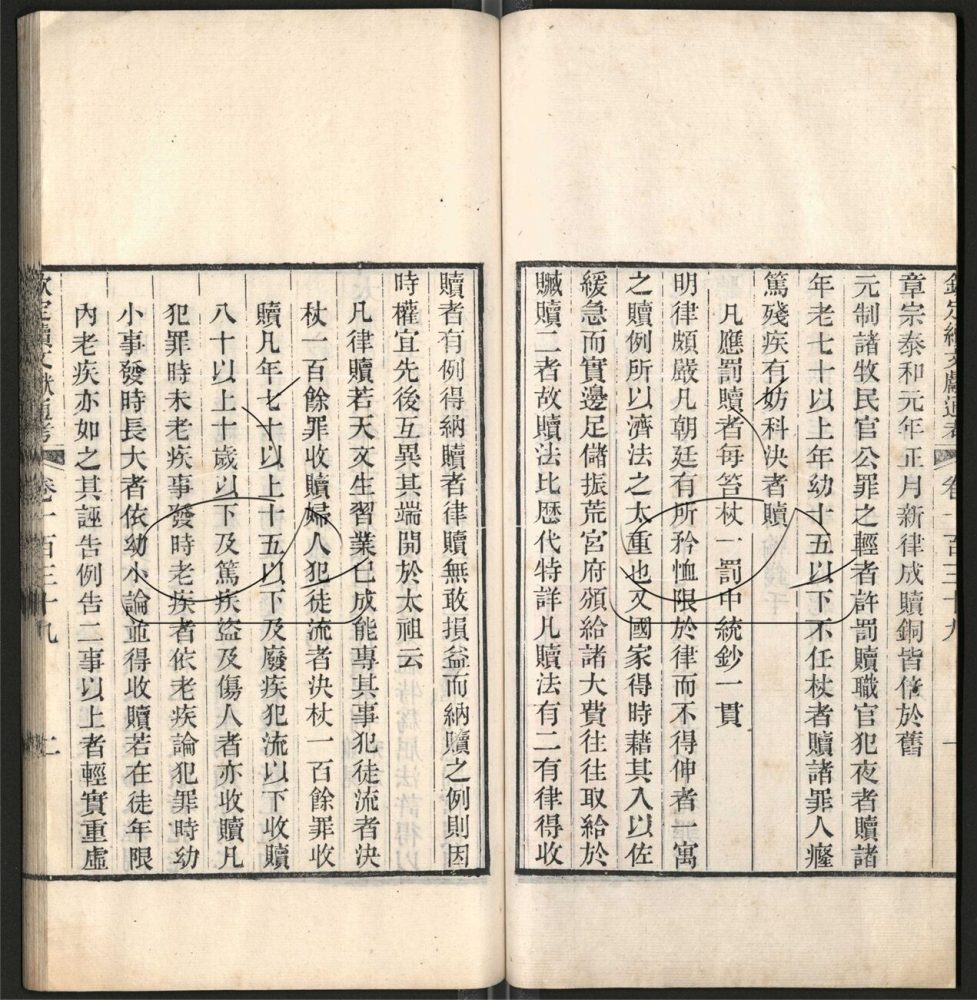 欽定續文獻通考 卷一百三十九 一
章宗泰和元年正月新律成贖銅皆倍於舊
元制諸牧民官公罪之輕者許罰贖職官犯夜者贖諸
年老七十以上年幼十五以下不任杖者贖諸罪人癃
篤殘疾有妨科決者贖
凡應罰贖者每笞杖一罰中統鈔一貫
明律頗嚴凡朝廷有所矜恤限於律而不得伸者一寓
之贖例所以濟法之太重也又國家得時藉其入以佐
緩急而實邊足儲振荒宮府頒給諸大費往往取給於
贓贖二者故贖法比歷代特詳凡贖法有二有律得收
贖者有例得納贖者律贖無敢損益而納贖之例則因
時權宜先後互異其端開於太祖云
凡律贖若天文生習業已成能專其事犯徒流者決
杖一百餘罪收贖婦人犯徒流者決杖一百餘罪收
贖凡年七十以上十五以下及廢疾犯流以下收贖
八十以上十歲以下及篤疾盜及傷人者亦收贖凡
犯罪時未老疾事發時老疾者依老疾論犯罪時幼
小事發時長大者依幼小論並得收贖若在徒年限
內老疾亦如之其誣告例告二事以上者輕實重虛
欽定續文獻通考 卷一百三十九 二